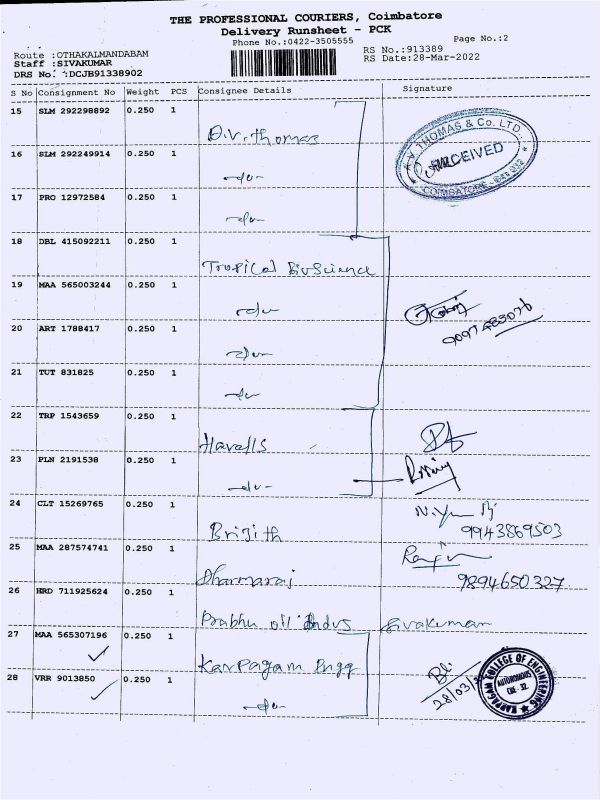 THE PROFESSIONAL COURIERS, Coimbatore
Delivery Runsheet - PCK
Phone No.:0422-3505555
Page No.:2
Route :OTHAKALMANDABAM
Staff :SIVAKUMAR
DRS No. :DCJB91338902
RS No.:913389
RS Date:28-Mar-2022
S No Consignment No Weight PCS Consignee Details Signature
15 SLM 292298892 0.250 1
A.V. Thomas
A.V THOMAS & Co. LTD.
RECEIVED
COIMBATORE
16 SLM 292249914 0.250 1
-do-
17 PRO 12972584 0.250 1
-do-
18 DBL 415092211 0.250 1
Tropical BioScience
19 MAA 565003244 0.250 1
-do-
20 ART 1788417 0.250 1
-do-
21 TUT 831825 0.250 1
-do-
22 TRP 1543659 0.250 1
Havells
23 PLN 2191538 0.250 1
-do-
24 CLT 15269765 0.250 1
Brijith 9943869503
25 MAA 287574741 0.250 1
Dharmaraj 9894650327
26 HRD 711925624 0.250 1
Prabhu oil Indus Sivakumar
27 MAA 565307196 0.250 1
Karpagam Engg
28/03/
KARPAGAM COLLEGE OF ENGINEERING
AUTONOMOUS
CBE - 32.
28 VRR 9013850 0.250 1
-do-